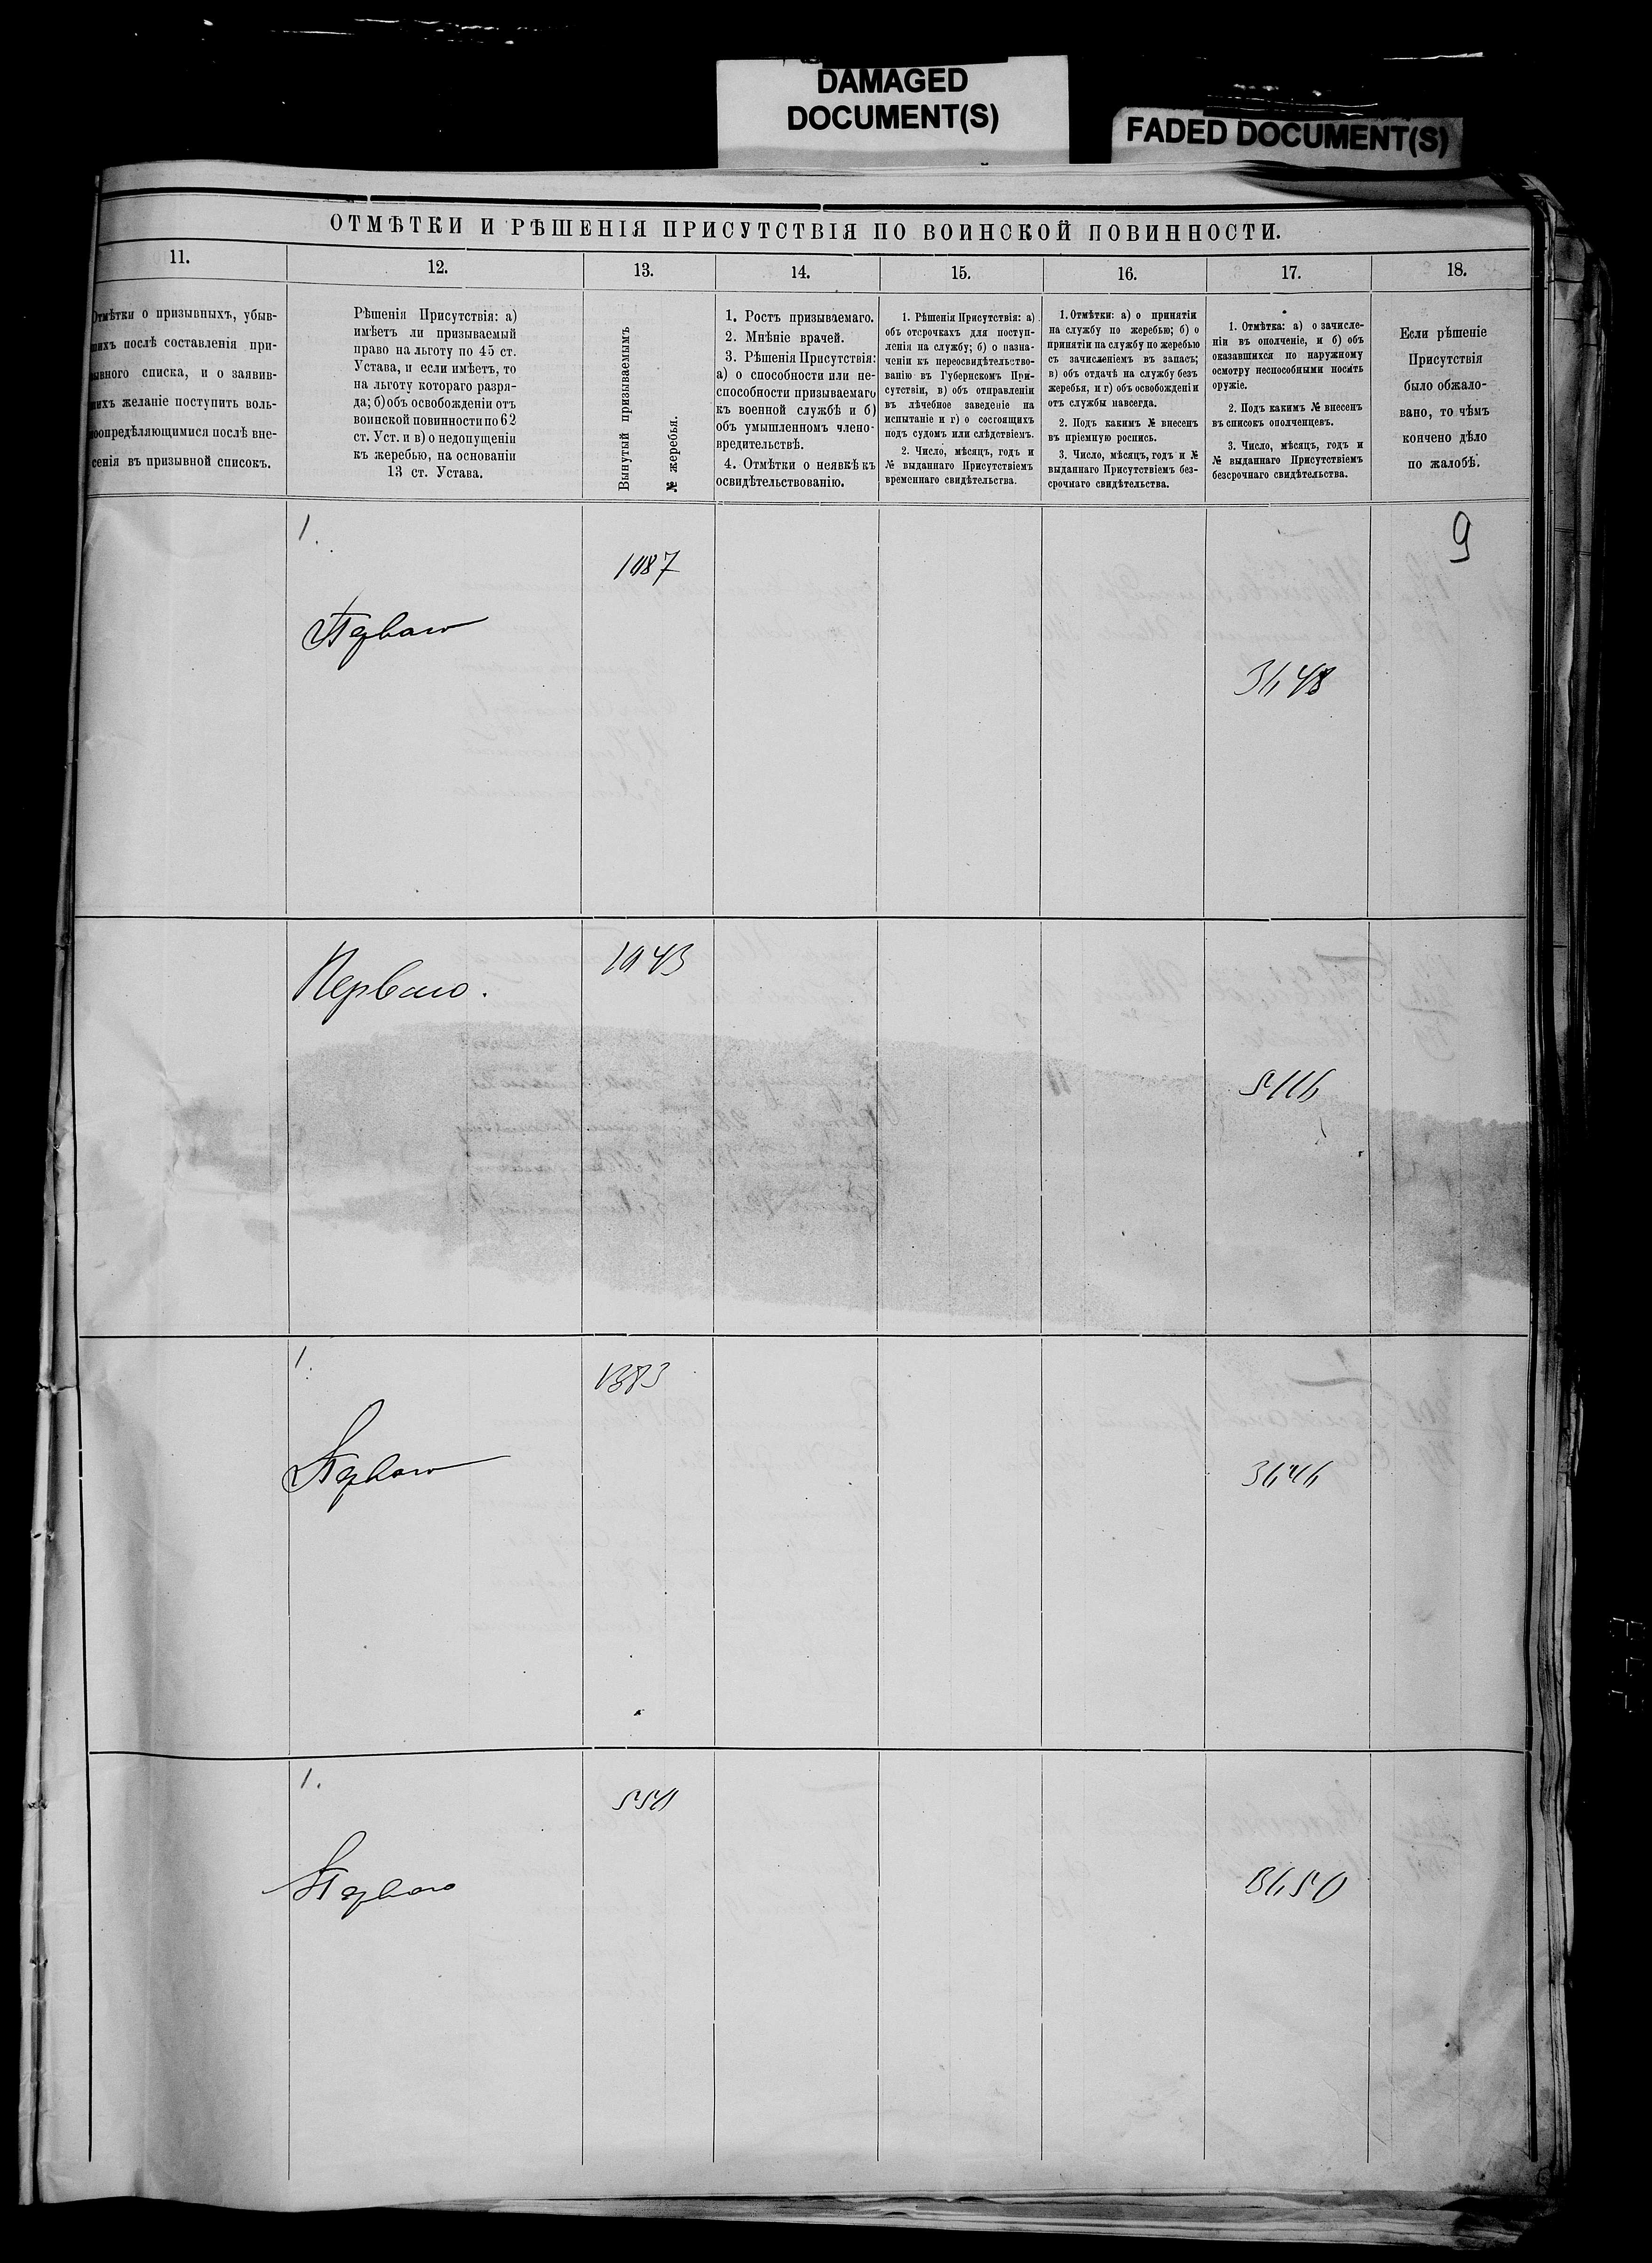 DAMAGED
DOCUMENT(S)
FADED DOCUMENT(S)
ОТМѢТКИ И РѢШЕНІЯ ПРИСУТСТВІЯ ПО ВОИНСКОЙ ПОВИННОСТИ.
11.
12.
13.
14.
15.
16.
17.
18.
Отмѣтки о призывныхъ, убыв-
шихъ послѣ составленія при-
зывного списка, и о заявив-
шихъ желаніе поступить воль-
ноопредѣляющимися послѣ вне-
сенія въ призывной списокъ.
Рѣшенія Присутствія: а)
имѣетъ ли призываемый
право на льготу по 45 ст.
Устава, и если имѣетъ, то
на льготу котораго разря-
да; б) объ освобожденіи отъ
воинской повинности по 62
ст. Уст. и в) о недопущеніи
къ жеребью, на основаніи
13 ст. Устава.
Вынутый призываемымъ
№ жеребья.
1. Ростъ призываемаго.
2. Мнѣніе врачей.
3. Рѣшенія Присутствія:
а) о способности или не-
способности призываемаго
къ военной службѣ и б)
объ умышленномъ члено-
вредительствѣ.
4. Отмѣтки о неявкѣ къ
освидѣтельствованію.
1. Рѣшенія Присутствія: а)
объ отсрочкахъ для поступ-
ленія на службу; б) о назна-
ченіи къ переосвидѣтельство-
ванію въ Губернскомъ При-
сутствіи, в) объ отправленіи
въ лѣчебное заведеніе на
испытаніе и г) о состоящихъ
подъ судомъ или слѣдствіемъ.
2. Число, мѣсяцъ, годъ и
№ выданнаго Присутствіемъ
временнаго свидѣтельства.
1. Отмѣтки: а) о принятіи
на службу по жеребью; б) о
принятіи на службу по жеребью
съ зачисленіемъ въ запасъ;
в) объ отдачѣ на службу безъ
жеребья, и г) объ освобожденіи
отъ службы навсегда.
2. Подъ какимъ № внесенъ
въ пріемную роспись.
3. Число, мѣсяцъ, годъ и №
выданнаго Присутствіемъ без-
срочнаго свидѣтельства.
1. Отмѣтка: а) о зачисле-
ніи въ ополченіе, и б) объ
оказавшихся по наружному
осмотру неспособными носить
оружіе.
2. Подъ какимъ № внесенъ
въ списокъ ополченцевъ.
3. Число, мѣсяцъ, годъ и
№ выданнаго Присутствіемъ
безсрочнаго свидѣтельства.
Если рѣшеніе
Присутствія
было обжало-
вано, то чѣмъ
кончено дѣло
по жалобѣ.
1.
9
1087
Перваго
3648
Перваго.
1043
5116
1.
1383
Перваго
3646
1.
550
Перваго
3650